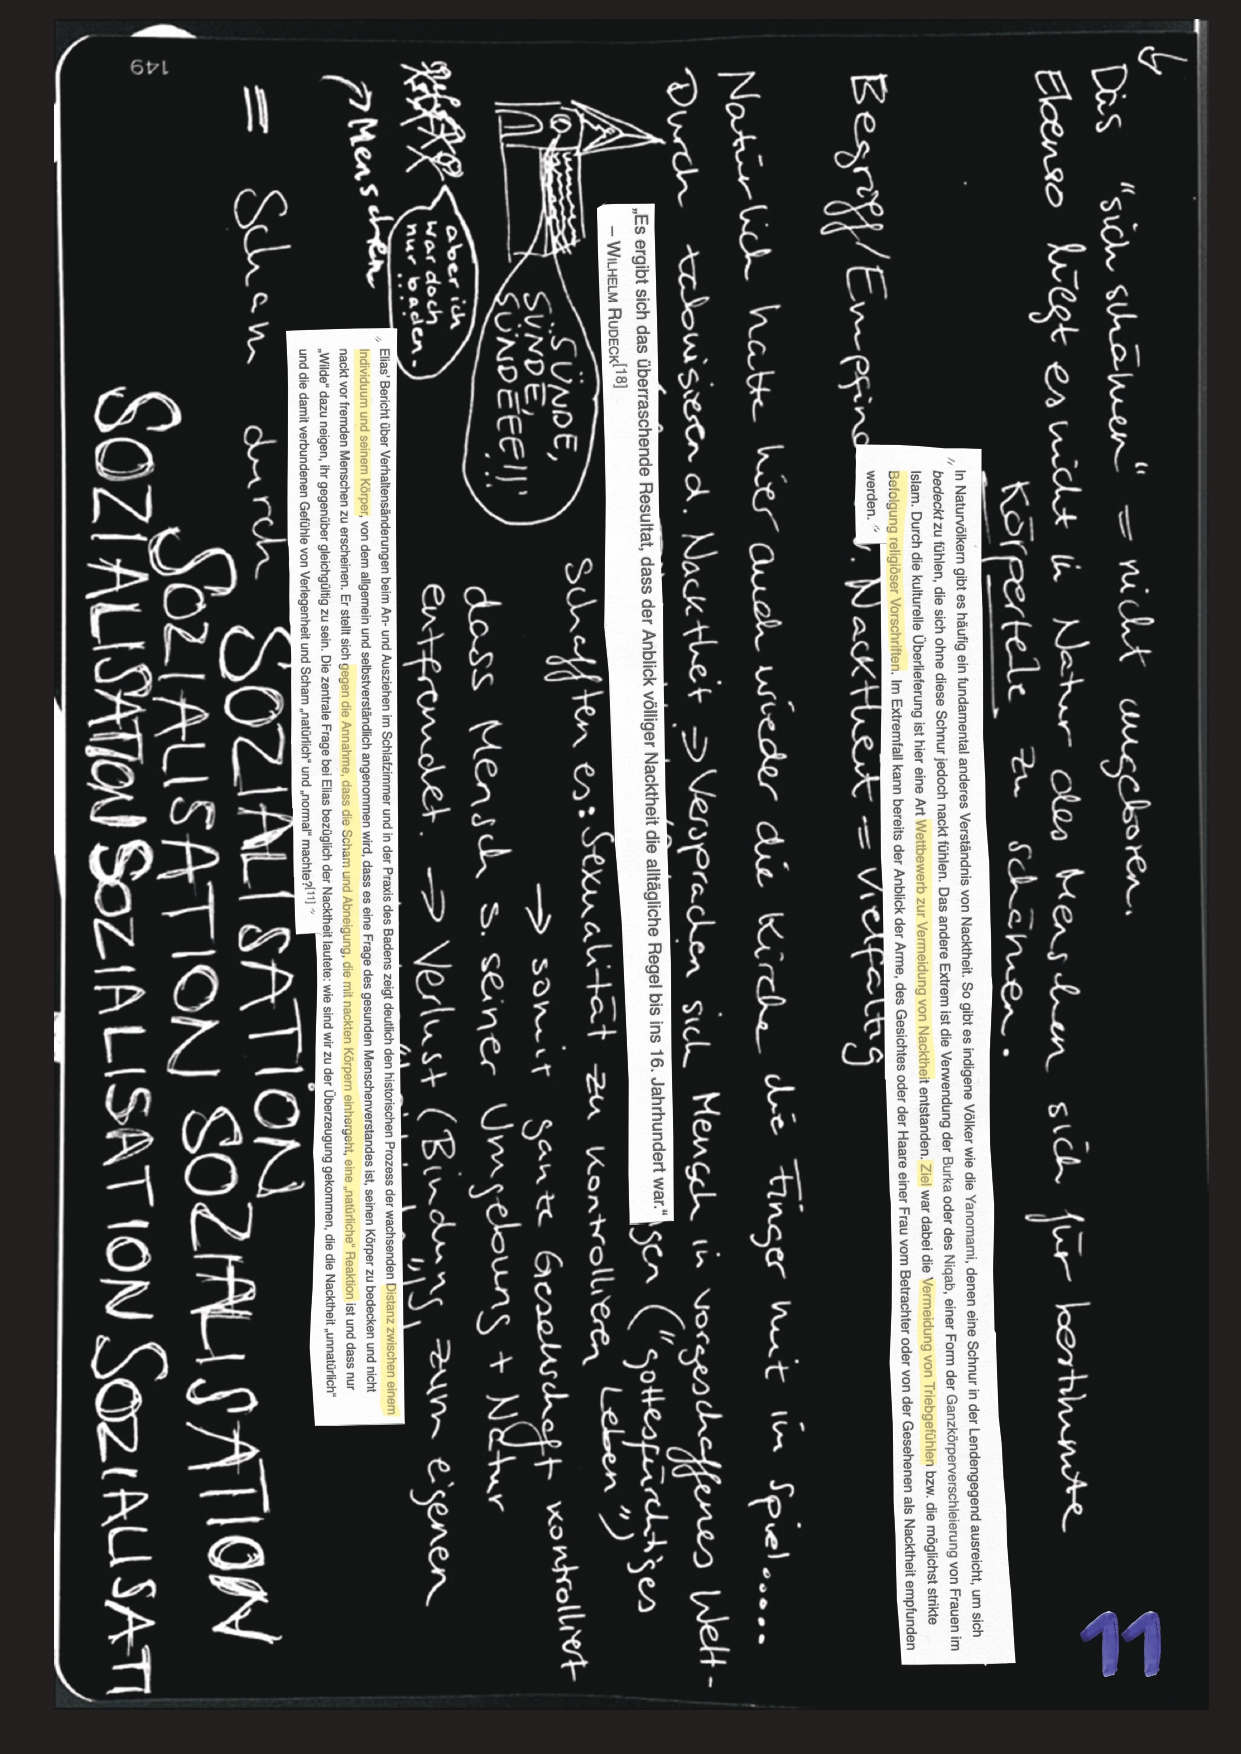 11
Das "sich schämen" = nicht angeboren.
Ebenso liegt es nicht in Natur des Menschen sich für bestimmte
Körperteile zu schämen.
„ In Naturvölkern gibt es häufig ein fundamental anderes Verständnis von Nacktheit. So gibt es indigene Völker wie die Yanomami, denen eine Schnur in der Lendengegend ausreicht, um sich
bedeckt zu fühlen, die sich ohne diese Schnur jedoch nackt fühlen. Das andere Extrem ist die Verwendung der Burka oder des Niqab, einer Form der Ganzkörperverschleierung von Frauen im
Islam. Durch die kulturelle Überlieferung ist hier eine Art Wettbewerb zur Vermeidung von Nacktheit entstanden. Ziel war dabei die Vermeidung von Triebgefühlen bzw. die möglichst strikte
Befolgung religiöser Vorschriften. Im Extremfall kann bereits der Anblick der Arme, des Gesichtes oder der Haare einer Frau vom Betrachter oder von der Gesehenen als Nacktheit empfunden
werden. “
Begriff/Empfind Nacktheit = vielfältig
Natürlich hatte hier auch wieder die Kirche die Finger mit im Spiel.....
Durch tabuisierend. Nacktheit => Versprachen sich Mensch in vorgeschaffenes Welt-
gen ("gottesfürchtiges
Leben")
„Es ergibt sich das überraschende Resultat, dass der Anblick völliger Nacktheit die alltägliche Regel bis ins 16. Jahrhundert war.“
– WILHELM RUDECK[18]
Schafften es: Sexualität zu kontrollieren
→ somit ganze Gesellschaft kontrolliert
dass Mensch s. seiner Umgebung + Natur
entfremdet. => Verlust (Bindung) zum eigenen
SÜNDE,
SÜNDE,
SÜNDEEE!!!
aber ich
war doch
nur baden.
→ Menschen
„ Elias’ Bericht über Verhaltensänderungen beim An- und Ausziehen im Schlafzimmer und in der Praxis des Badens zeigt deutlich den historischen Prozess der wachsenden Distanz zwischen einem
Individuum und seinem Körper, von dem allgemein und selbstverständlich angenommen wird, dass es eine Frage des gesunden Menschenverstandes ist, seinen Körper zu bedecken und nicht
nackt vor fremden Menschen zu erscheinen. Er stellt sich gegen die Annahme, dass die Scham und Abneigung, die mit nackten Körpern einhergeht, eine „natürliche“ Reaktion ist und dass nur
„Wilde“ dazu neigen, ihr gegenüber gleichgültig zu sein. Die zentrale Frage bei Elias bezüglich der Nacktheit lautete: wie sind wir zu der Überzeugung gekommen, die die Nacktheit „unnatürlich“
und die damit verbundenen Gefühle von Verlegenheit und Scham „natürlich“ und „normal“ machte?[11] “
= Scham durch SOZIALISATION
SOZIALISATION SOZIALISATION
SOZIALISATION SOZIALISATION SOZIALISATI
149